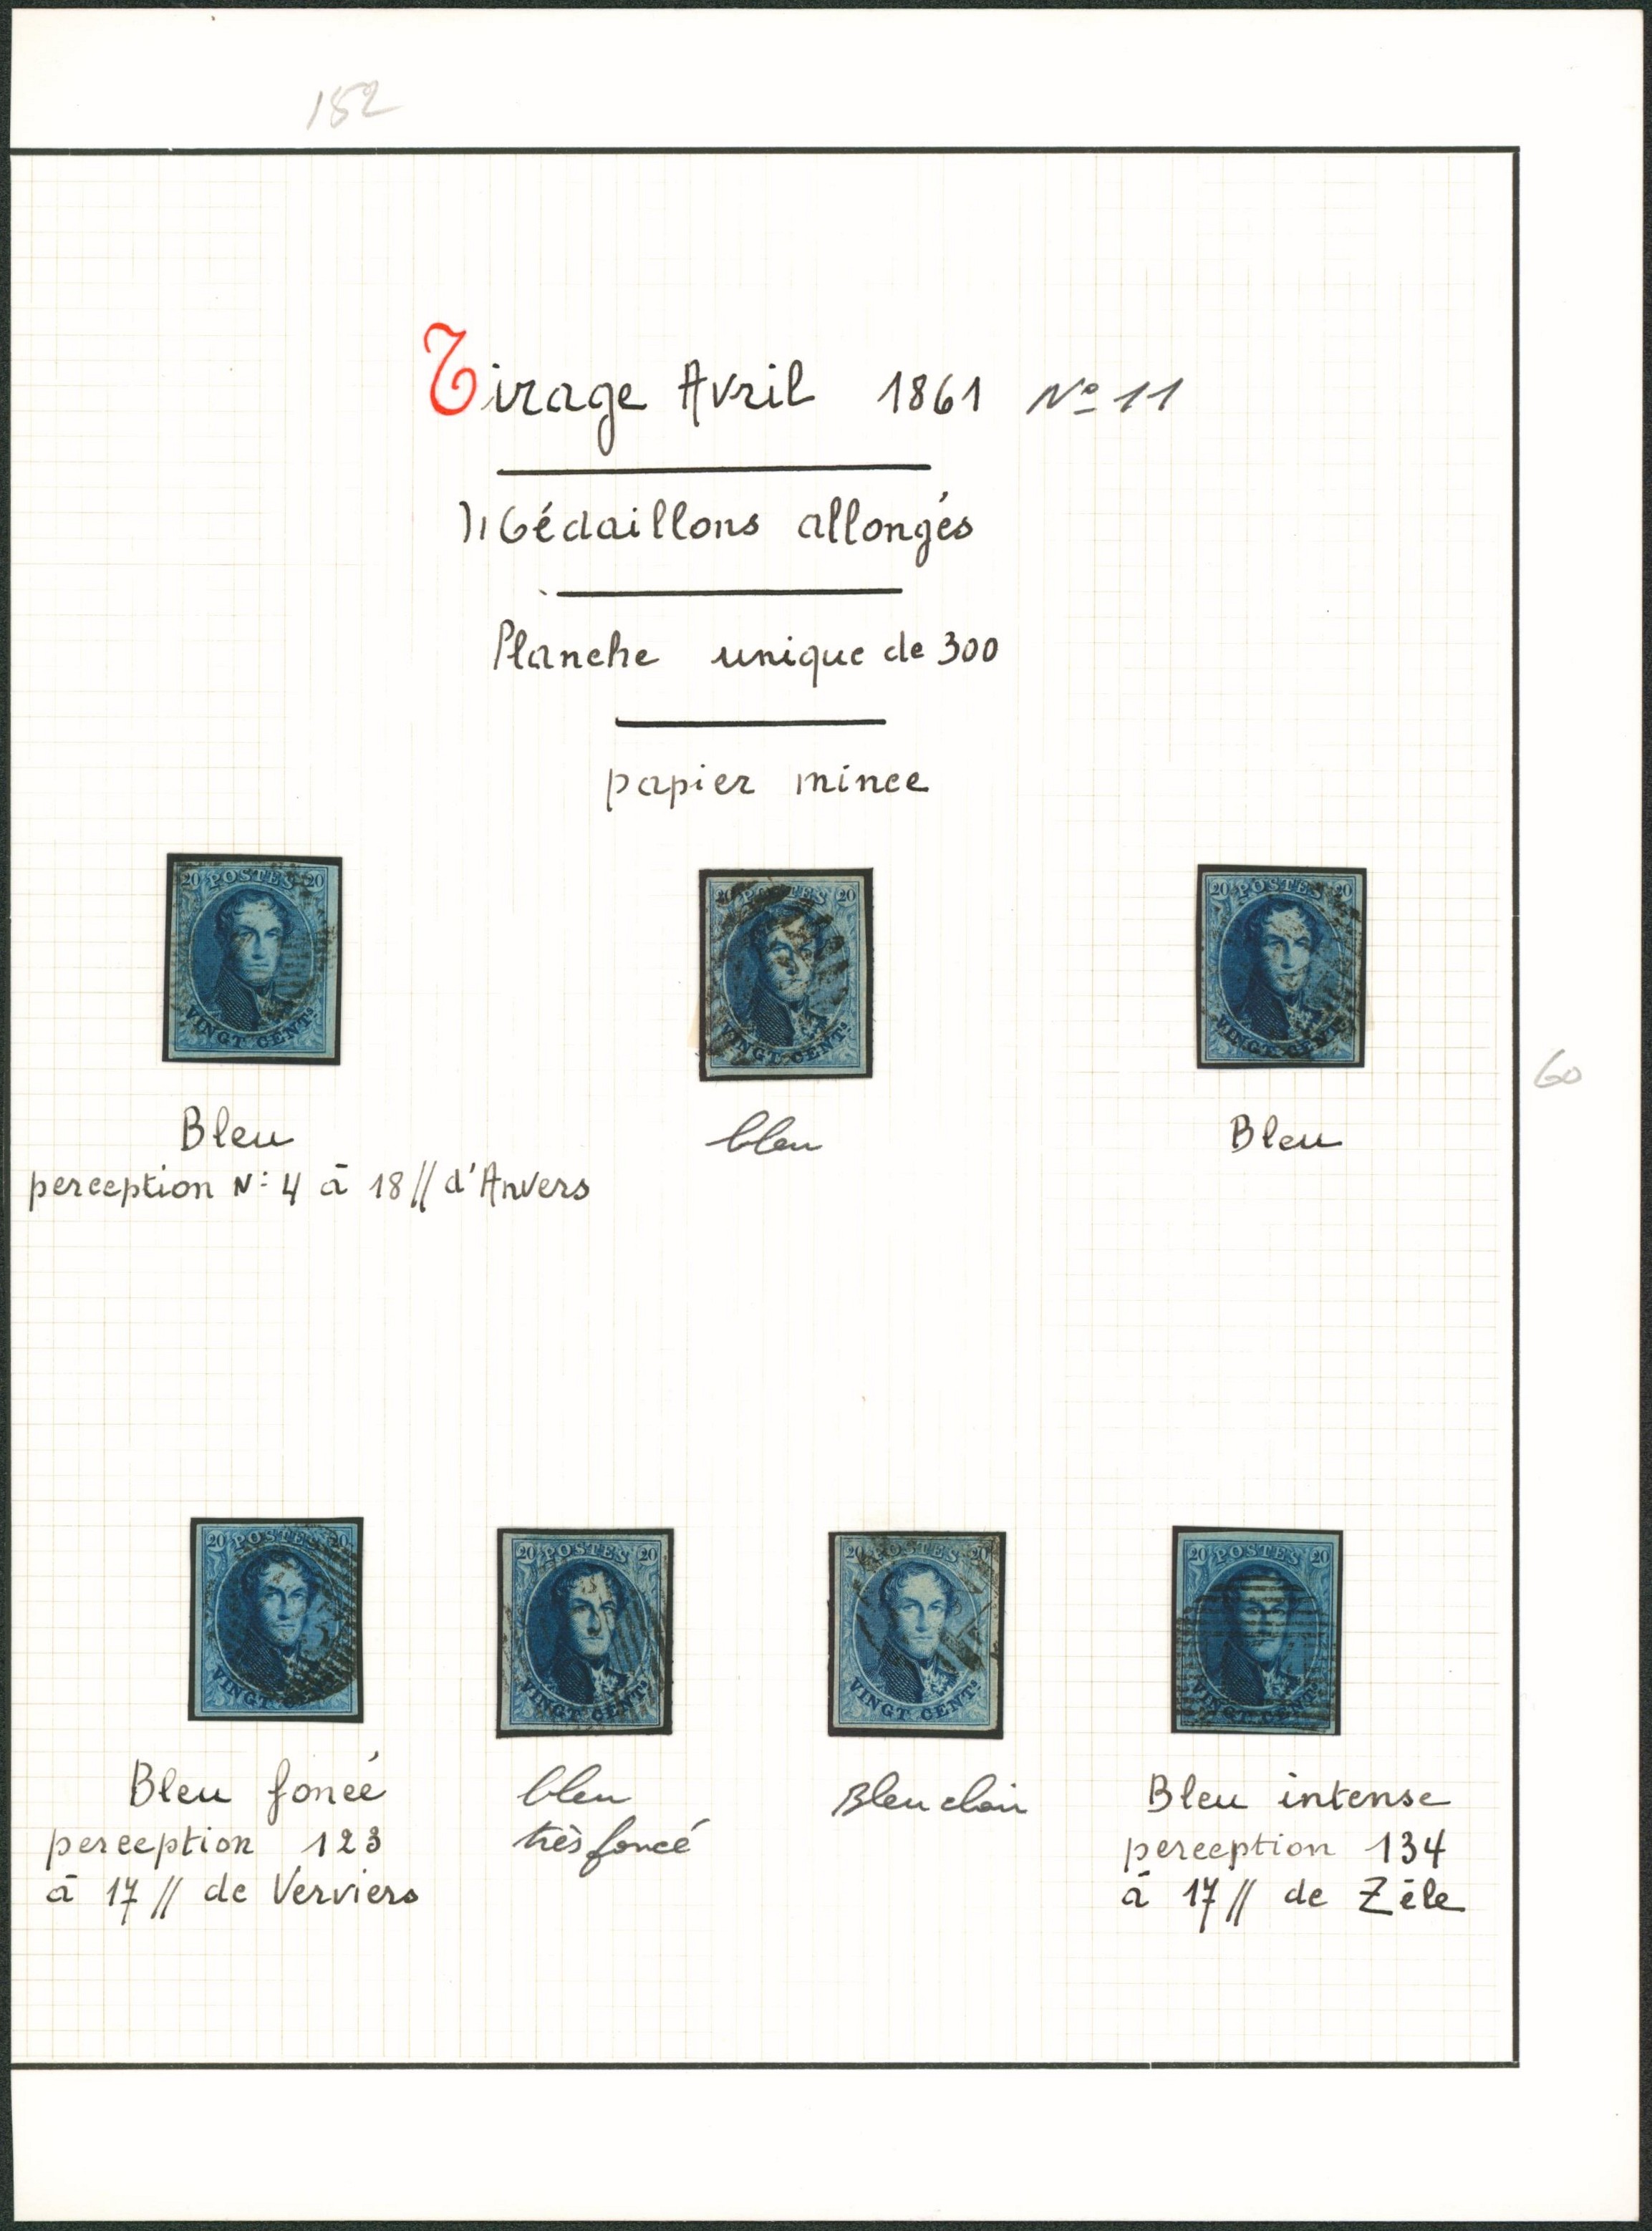 152
Tirage Avril 1861 No 11
Médaillons allongés
Planche unique de 300
papier mince
20 POSTES 20
VINGT CENTS
20 POSTES 20
VINGT CENTS
20 POSTES 20
VINGT CENTS
60
Bleu
perception N: 4 à 18 // d'Anvers
bleu
Bleu
20 POSTES 20
VINGT CENTS
20 POSTES 20
VINGT CENTS
20 POSTES 20
VINGT CENTS
20 POSTES 20
VINGT CENTS
Bleu foncé
perception 123
à 17 // de Verviers
bleu
très foncé
Bleu clair
Bleu intense
perception 134
à 17 // de Zèle